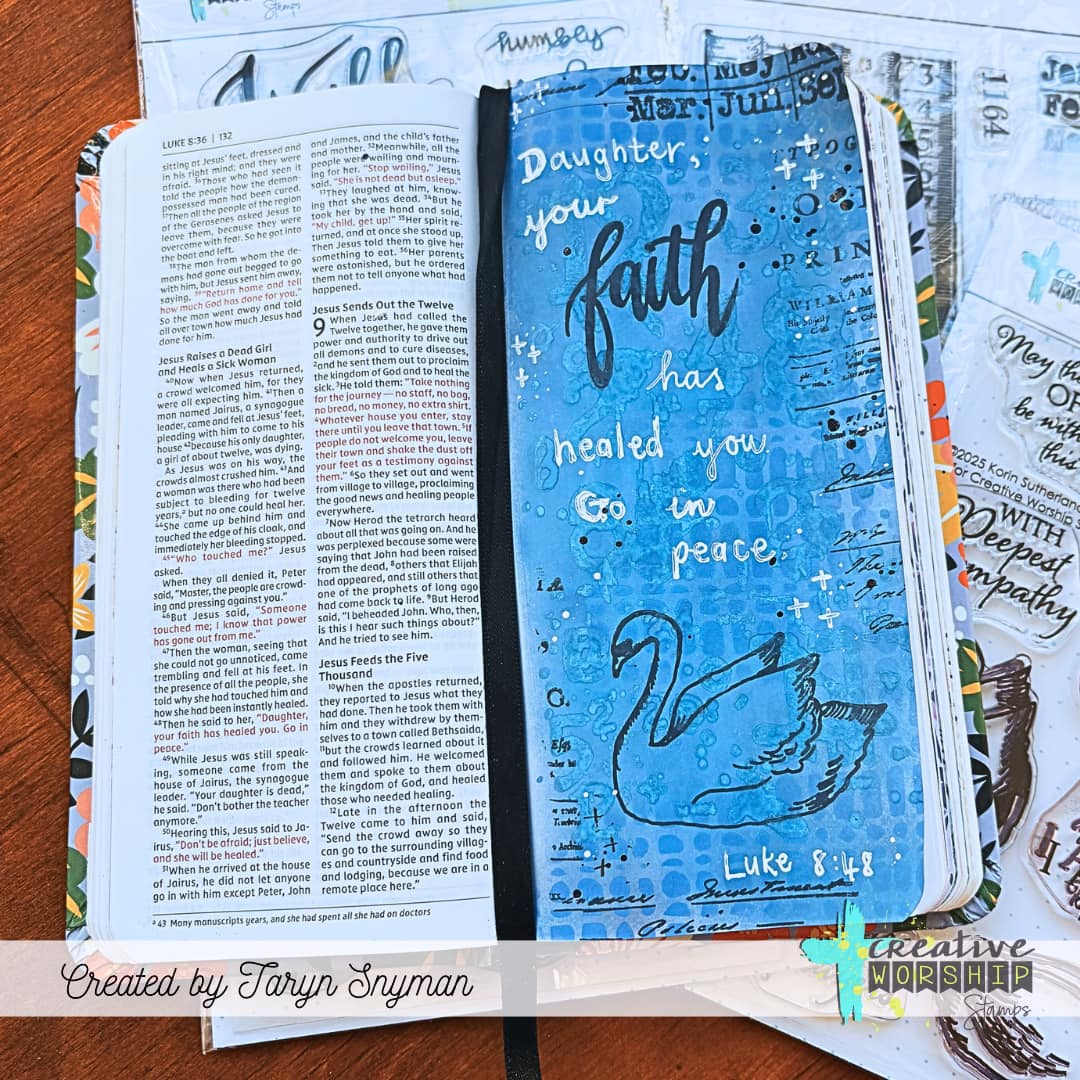 Stamps
humbly
LUKE 8:36 | 132
sitting at Jesus' feet, dressed and
in his right mind; and they were
afraid. 36Those who had seen it
told the people how the demon-
possessed man had been cured.
37Then all the people of the region
of the Gerasenes asked Jesus to
leave them, because they were
overcome with fear. So he got into
the boat and left.
38The man from whom the de-
mons had gone out begged to go
with him, but Jesus sent him away,
saying, 39"Return home and tell
how much God has done for you."
So the man went away and told
all over town how much Jesus had
done for him.
Jesus Raises a Dead Girl
and Heals a Sick Woman
40Now when Jesus returned,
a crowd welcomed him, for they
were all expecting him. 41Then a
man named Jairus, a synagogue
leader, came and fell at Jesus' feet,
pleading with him to come to his
house 42because his only daughter,
a girl of about twelve, was dying.
As Jesus was on his way, the
crowds almost crushed him. 43And
a woman was there who had been
subject to bleeding for twelve
years,a but no one could heal her.
44She came up behind him and
touched the edge of his cloak, and
immediately her bleeding stopped.
45"Who touched me?" Jesus
asked.
When they all denied it, Peter
said, "Master, the people are crowd-
ing and pressing against you."
46But Jesus said, "Someone
touched me; I know that power
has gone out from me."
47Then the woman, seeing that
she could not go unnoticed, came
trembling and fell at his feet. In
the presence of all the people, she
told why she had touched him and
how she had been instantly healed.
48Then he said to her, "Daughter,
your faith has healed you. Go in
peace."
49While Jesus was still speak-
ing, someone came from the
house of Jairus, the synagogue
leader. "Your daughter is dead,"
he said. "Don't bother the teacher
anymore."
50Hearing this, Jesus said to Ja-
irus, "Don't be afraid; just believe,
and she will be healed."
51When he arrived at the house
of Jairus, he did not let anyone
go in with him except Peter, John
and James, and the child's father
and mother. 52Meanwhile, all the
people were wailing and mourn-
ing for her. "Stop wailing," Jesus
said. "She is not dead but asleep."
53They laughed at him, know-
ing that she was dead. 54But he
took her by the hand and said,
"My child, get up!" 55Her spirit re-
turned, and at once she stood up.
Then Jesus told them to give her
something to eat. 56Her parents
were astonished, but he ordered
them not to tell anyone what had
happened.
Jesus Sends Out the Twelve
9 When Jesus had called the
Twelve together, he gave them
power and authority to drive out
all demons and to cure diseases,
2and he sent them out to proclaim
the kingdom of God and to heal the
sick. 3He told them: "Take nothing
for the journey — no staff, no bag,
no bread, no money, no extra shirt.
4Whatever house you enter, stay
there until you leave that town. 5If
people do not welcome you, leave
their town and shake the dust off
your feet as a testimony against
them." 6So they set out and went
from village to village, proclaiming
the good news and healing people
everywhere.
7Now Herod the tetrarch heard
about all that was going on. And he
was perplexed because some were
saying that John had been raised
from the dead, 8others that Elijah
had appeared, and still others that
one of the prophets of long ago
had come back to life. 9But Herod
said, "I beheaded John. Who, then,
is this I hear such things about?"
And he tried to see him.
Jesus Feeds the Five
Thousand
10When the apostles returned,
they reported to Jesus what they
had done. Then he took them with
him and they withdrew by them-
selves to a town called Bethsaida,
11but the crowds learned about it
and followed him. He welcomed
them and spoke to them about
the kingdom of God, and healed
those who needed healing.
12Late in the afternoon the
Twelve came to him and said,
"Send the crowd away so they
can go to the surrounding villag-
es and countryside and find food
and lodging, because we are in a
remote place here."
a 43 Many manuscripts years, and she had spent all she had on doctors
Feb. May Aug
Mar. Jun. Sep
Daughter,
your
faith
has
healed you.
Go in
peace.
Luke 8:48
PRIN
WILLIAM
1164
May th
OF
be with
this
©2025 Korin Sutherland
for Creative Worship S
WITH
Deepest
mpathy
Created by Taryn Snyman
Creative
WORSHIP
Stamps